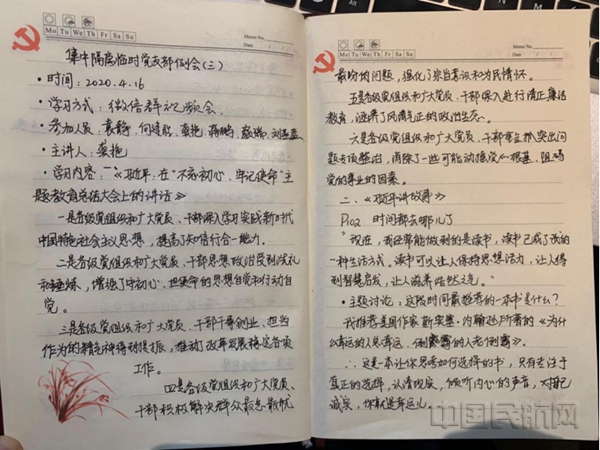 Mo Tu We Th Fr Sa Su
Memo No.
Date
集中隔离临时党支部例会(三)
·时间:2020.4.16
·学习方式:微信群视频会
·参加人员:
·主讲人:
·学习内容:一《习近平:在"不忘初心、牢记使命"主
题教育总结大会上的讲话》
一是各级党组织和广大党员、干部深入学习实践新时代
中国特色社会主义思想,提高了知信行合一能力。
二是各级党组织和广大党员、干部思想政治受到洗礼
和锤炼,增强了守初心、担使命的思想自觉和行动自
觉。
三是各级党组织和广大党员、干部干事创业、担当
作为的精气神得到提振,推动了改革发展稳定各项
工作。
四是各级党组织和广大党员、
干部积极解决群众最急最忧
Mo Tu We Th Fr Sa Su
Memo No.
Date
最盼的问题,强化了宗旨意识和为民情怀。
五是各级党组织和广大党员、干部深入进行清正廉洁
教育,涵养了风清气正的政治生态。
六是各级党组织和广大党员、干部奔着抓突出问
题去的整治,消除了一些可能动摇党的根基、阻碍
党的事业的因素。
二、《习近平讲故事》
P102 时间都去哪儿了
"现在,我经常能做到的是读书,读书已成了我的
一种生活方式,读书可以让人保持思想活力,让人得
到智慧启发,让人滋养浩然之气。"
·主题讨论:这段时间最推荐的一本书是什么?
我推荐美国作家斯宾塞·约翰逊所著的《为什
么幸运的人总幸运,倒霉的人老倒霉》。
∴这是一本让你思考如何选择的书,只有专注于
真正的选择,认清现实,倾听内心的声音,对自己
诚实,你就是幸运儿。
中国民航网